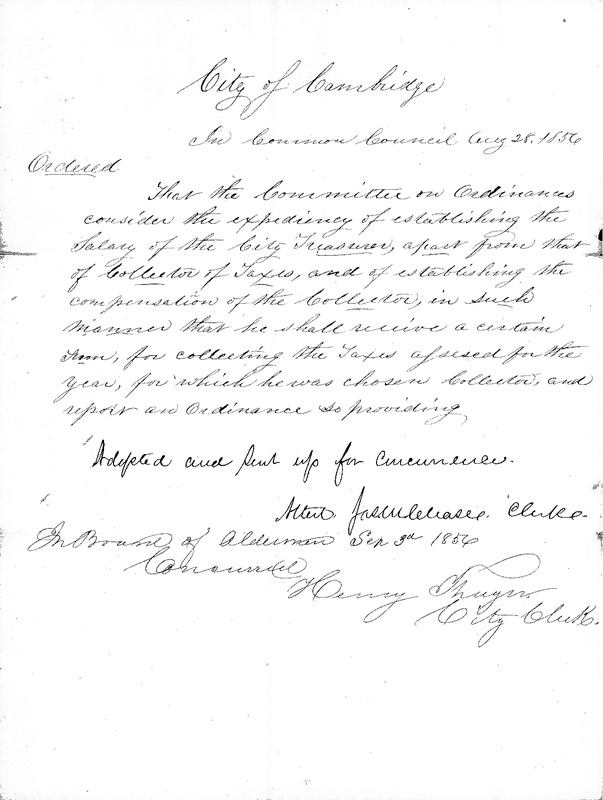 City of Cambridge
In Common Council Aug 28. 1856
Ordered
That the Committee on Ordinances
consider the expediency of establishing the
Salary of the City Treasurer, apart from that
of Collector of Taxes, and of establishing the
compensation of the Collector, in such
manner that he shall receive a certain
sum, for collecting the Taxes assesed for the
year, for which he was chosen Collector, and
report an Ordinance so providing
Adopted and sent up for concurrence.
Attest. Clerk.
In Board of Alderman Sep 3d 1856
Concurred
Henry Thayer
City Clerk.